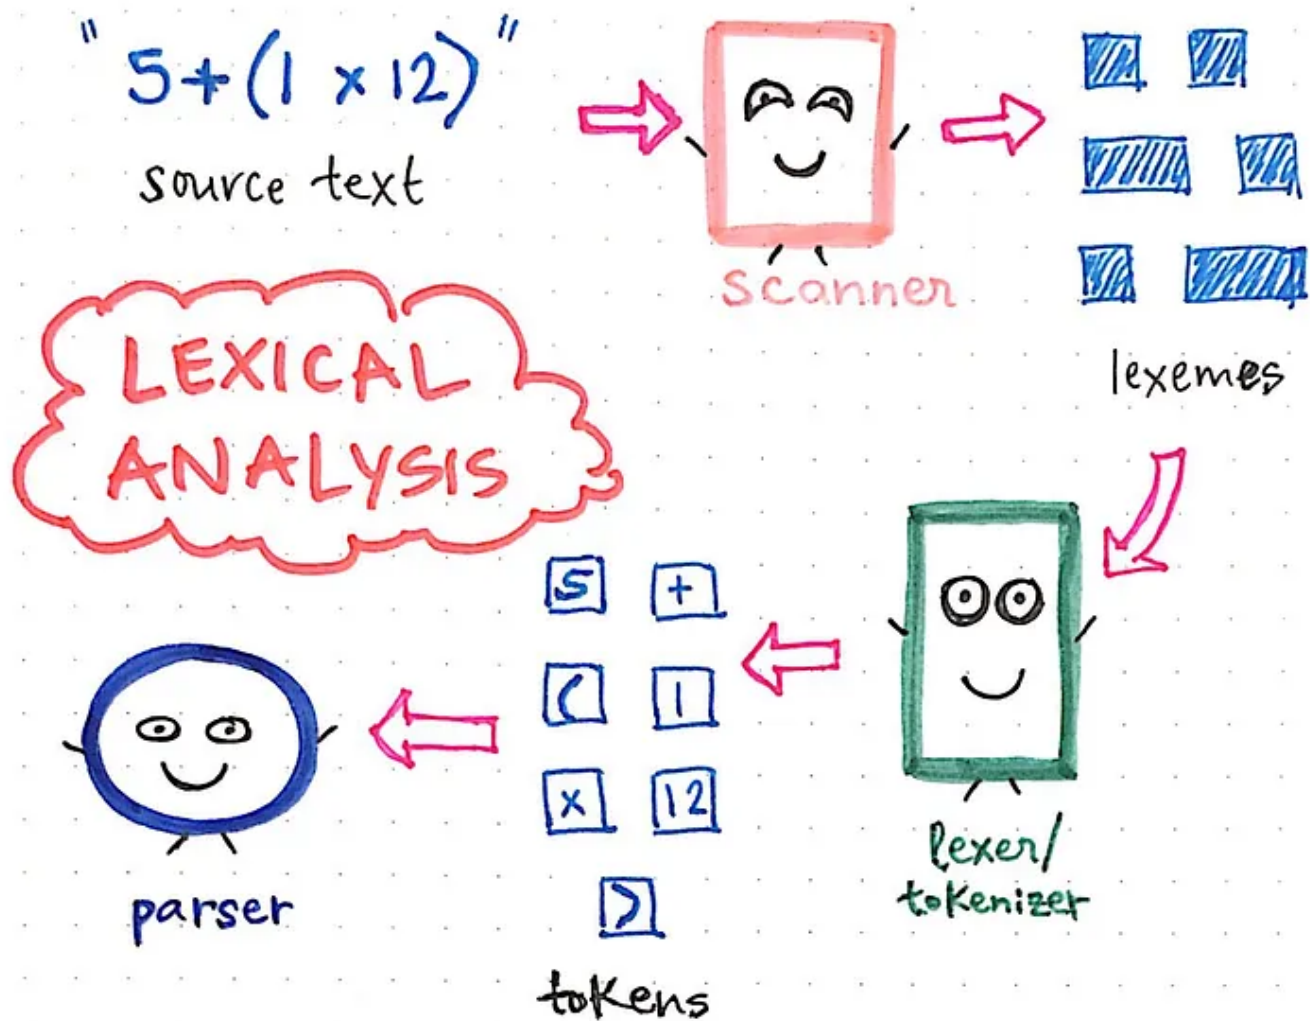 " 5+(1 x 12) "
source text
scanner
lexemes
LEXICAL
ANALYSIS
5 +
( 1
x 12
)
tokens
lexer/
tokenizer
parser